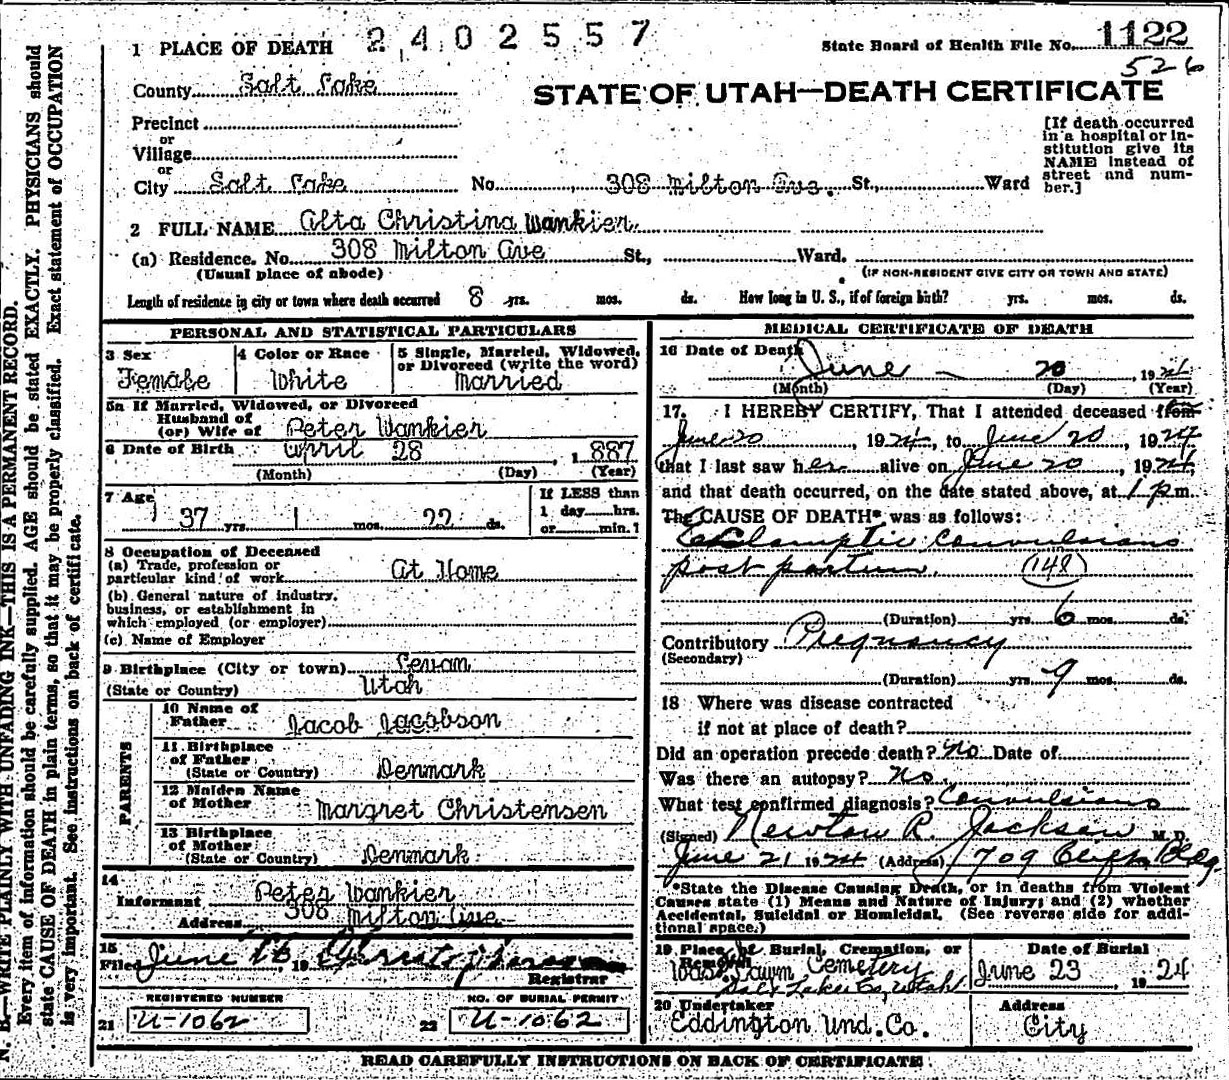 1 PLACE OF DEATH 2402557
State Board of Health File No. 1122
526
County Salt Lake
STATE OF UTAH—DEATH CERTIFICATE
Precinct
or
Village
or
City Salt Lake No. 308 Milton Ave. St., Ward
[If death occurred in a hospital or institution give its NAME instead of street and number.]
2 FULL NAME Alta Christina Wankier
(a) Residence. No. 308 Milton Ave St., Ward.
(Usual place of abode) (IF NON-RESIDENT GIVE CITY OR TOWN AND STATE)
Length of residence in city or town where death occurred 8 yrs. mos. ds. How long in U. S., if of foreign birth? yrs. mos. ds.
PERSONAL AND STATISTICAL PARTICULARS
3 Sex
Female
4 Color or Race
White
5 Single, Married, Widowed,
or Divorced (write the word)
Married
5a If Married, Widowed, or Divorced
Husband of
(or) Wife of Peter Wankier
6 Date of Birth April 28, 1887
(Month) (Day) (Year)
7 Age
37 yrs. 1 mos. 22 ds.
If LESS than
1 day hrs.
or min.?
8 Occupation of Deceased
(a) Trade, profession or
particular kind of work At Home
(b) General nature of industry,
business, or establishment in
which employed (or employer)
(c) Name of Employer
9 Birthplace (City or town) Levan
(State or Country) Utah
PARENTS
10 Name of
Father Jacob Jacobson
11 Birthplace
of Father
(State or Country) Denmark
12 Maiden Name
of Mother Margret Christensen
13 Birthplace
of Mother
(State or Country) Denmark
14
Informant Peter Wankier
Address 308 Milton Ave
15
Filed June 19
Registrar
REGISTERED NUMBER
21 U-1062
NO. OF BURIAL PERMIT
22 U-1062
MEDICAL CERTIFICATE OF DEATH
16 Date of Death
June - 20, 1924
(Month) (Day) (Year)
17. I HEREBY CERTIFY, That I attended deceased from
June 20, 1924, to June 20, 1924
that I last saw her alive on June 20, 1924,
and that death occurred, on the date stated above, at 1 p m.
The CAUSE OF DEATH* was as follows:
Eclamptic convulsions
post partum. (148)
(Duration) yrs. 6 mos. ds.
Contributory Pregnancy
(Secondary)
(Duration) yrs. 9 mos. ds.
18 Where was disease contracted
if not at place of death?
Did an operation precede death? No Date of
Was there an autopsy? No.
What test confirmed diagnosis? Convulsions
(Signed) Newton R. Jackson M. D.
June 21 1924 (Address) 1709 Clift Bldg.
*State the Disease Causing Death, or in deaths from Violent
Causes state (1) Means and Nature of Injury; and (2) whether
Accidental, Suicidal or Homicidal. (See reverse side for addi-
tional space.)
19 Place of Burial, Cremation, or
Removal
Wasatch Lawn Cemetery
Salt Lake Co, Utah
Date of Burial
June 23 1924
20 Undertaker
Eddington Und. Co.
Address
City
READ CAREFULLY INSTRUCTIONS ON BACK OF CERTIFICATE
N. B.—WRITE PLAINLY WITH UNFADING INK—THIS IS A PERMANENT RECORD.
Every item of information should be carefully supplied. AGE should be stated EXACTLY. PHYSICIANS should
state CAUSE OF DEATH in plain terms, so that it may be properly classified. Exact statement of OCCUPATION
is very important. See instructions on back of certificate.